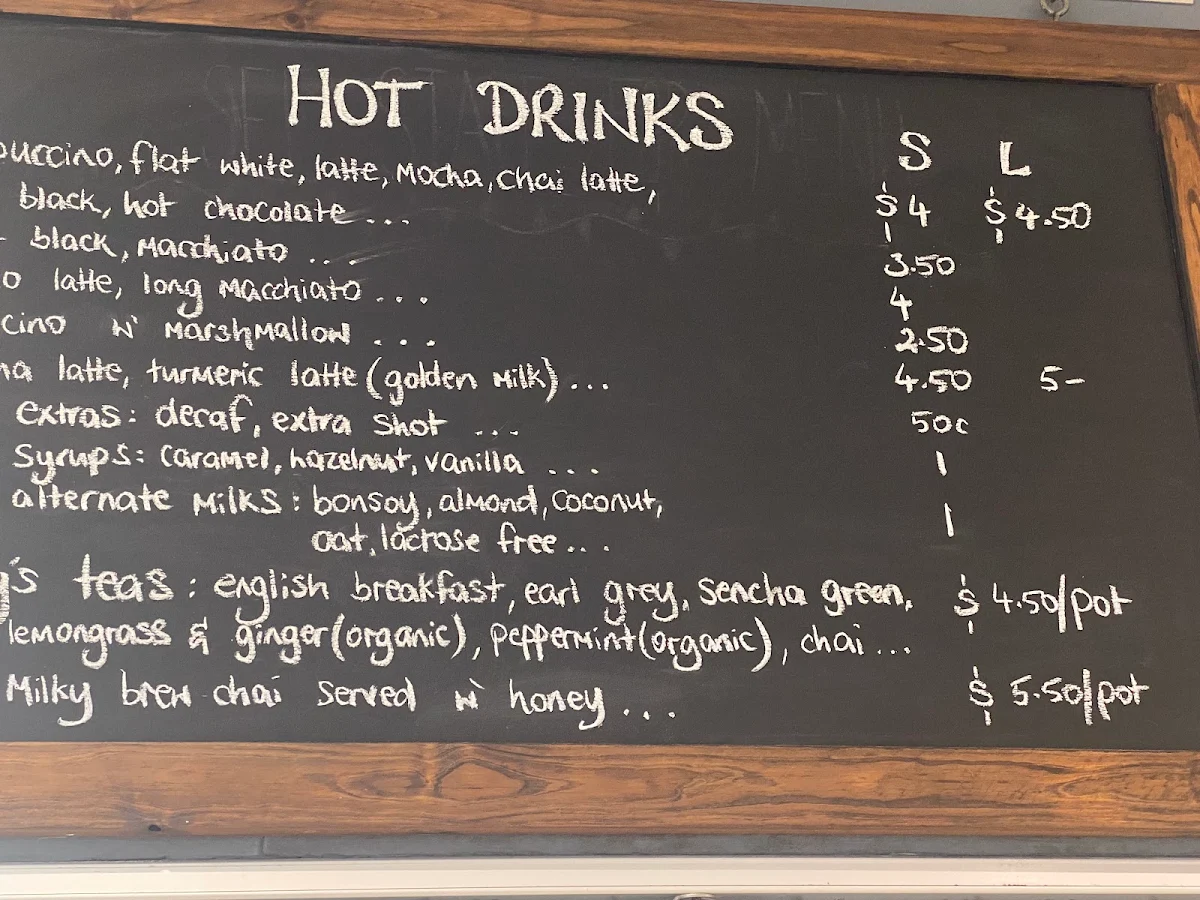 HOT DRINKS
S L
puccino, flat white, latte, Mocha, chai latte,
black, hot chocolate ... $4 $4.50
black, Macchiato ... 3.50
o latte, long Macchiato ... 4
cino N' Marshmallow ... 2.50
ha latte, turmeric latte (golden Milk) ... 4.50 5-
extras: decaf, extra shot ... 50c
Syrups: caramel, hazelnut, vanilla ... 1
alternate Milks: bonsoy, almond, coconut,
oat, lactose free ... 1
g's teas: english breakfast, earl grey, sencha green, $4.50/pot
lemongrass & ginger (organic), peppermint (organic), chai ...
Milky brew chai served N' honey ... $5.50/pot